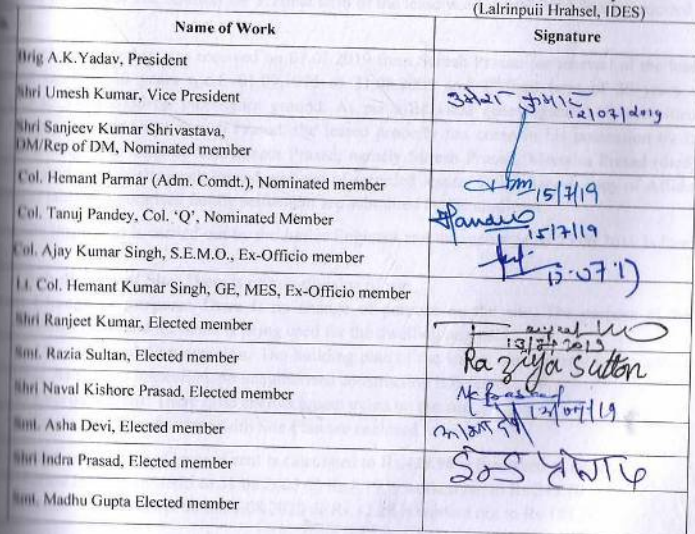 (Lalrinpuii Hrahsel, IDES)
Name of Work Signature
Brig A.K.Yadav, President
Shri Umesh Kumar, Vice President उमेश कुमार 12/07/2019
Shri Sanjeev Kumar Shrivastava,
DM/Rep of DM, Nominated member
Col. Hemant Parmar (Adm. Comdt.), Nominated member 15/7/19
Col. Tanuj Pandey, Col. ‘Q’, Nominated Member 15/7/19
Col. Ajay Kumar Singh, S.E.M.O., Ex-Officio member
Lt. Col. Hemant Kumar Singh, GE, MES, Ex-Officio member
Shri Ranjeet Kumar, Elected member 13/07/2019
Smt. Razia Sultan, Elected member Raziya Sultan
Shri Naval Kishore Prasad, Elected member NKPrasad 12/07/19
Smt. Asha Devi, Elected member आशा देवी
Shri Indra Prasad, Elected member
Smt. Madhu Gupta Elected member